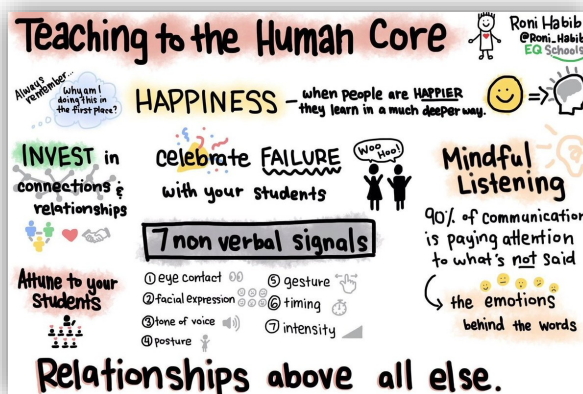 Teaching to the Human Core
Roni Habib
@Roni_Habib
EQ Schools
Always
remember...
Why am I
doing this in
the first place?
HAPPINESS – when people are HAPPIER
they learn in a much deeper way.
INVEST in
connections &
relationships
celebrate FAILURE
with your students
Woo
Hoo!
Mindful
Listening
90% of communication
is paying attention
to what's not said
the emotions
behind the words
7 non verbal signals
① eye contact
② facial expression
③ tone of voice
④ posture
⑤ gesture
⑥ timing
⑦ intensity
Attune to your
students
Relationships above all else.